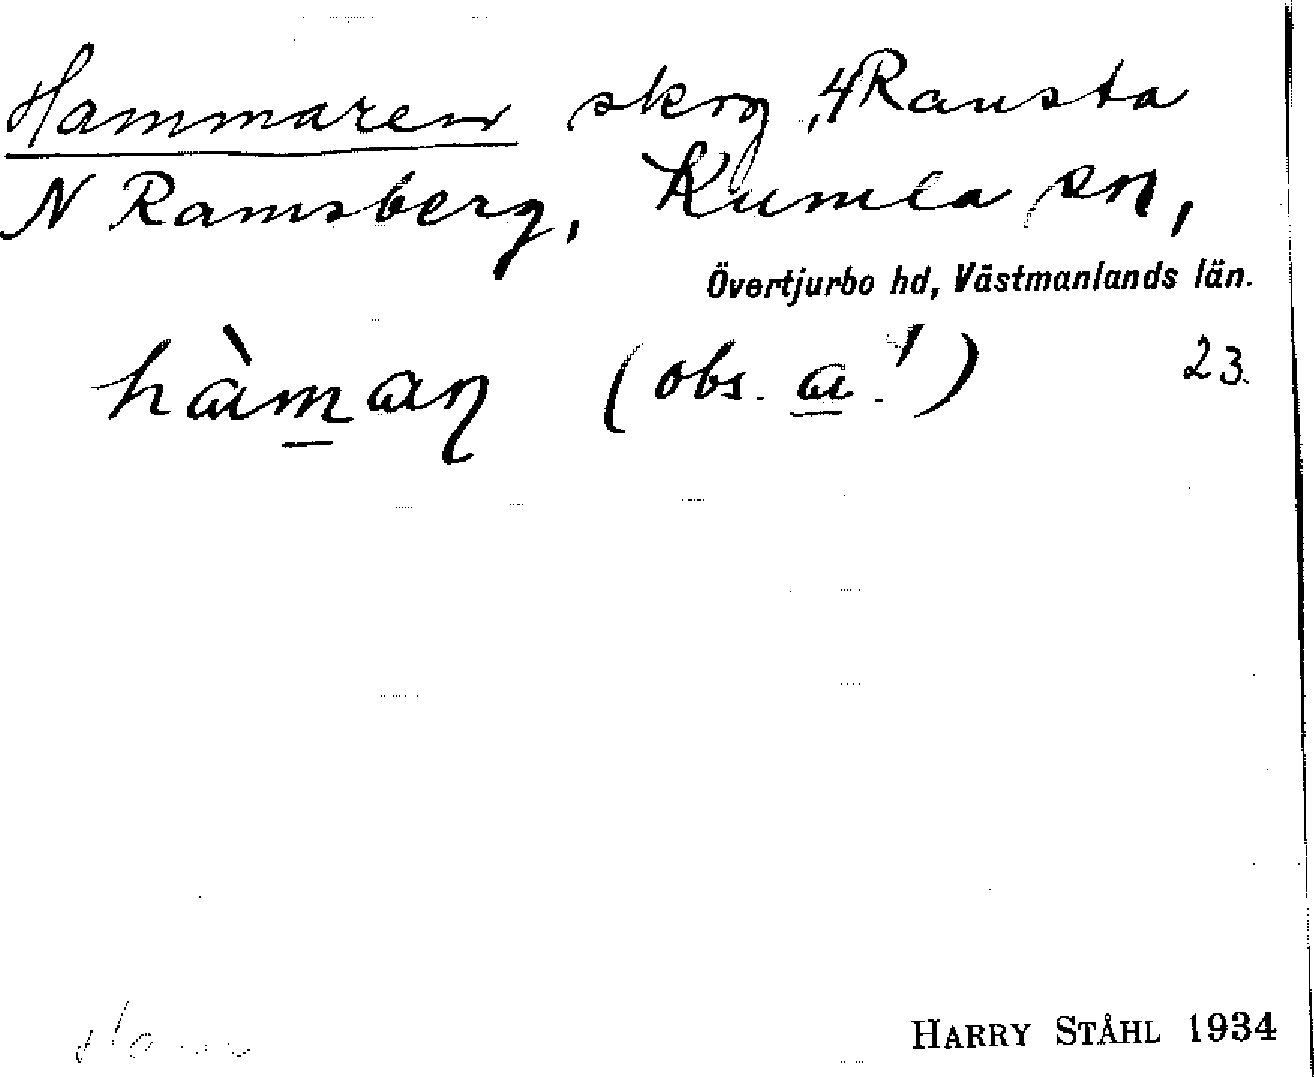 Hammaren skog, 4 Ransta
N Ramsberg, Kumla sn,
Övertjurbo hd, Västmanlands län.
hàman (obs. a.!) 23.
HARRY STÅHL 1934